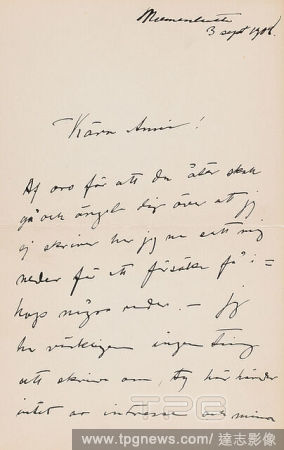 3 sept 1908.
Kära Anna!
Af oro för att du åter skall
gå och ängsla dig över att jag
ej skriver har jag nu satt mig
neder för att försöka få i=
hop några rader. — Jag
har verkligen ingenting
att skriva om, ty här händer
intet av intresse och mina
TPG
www.tpgnews.com/達志影像